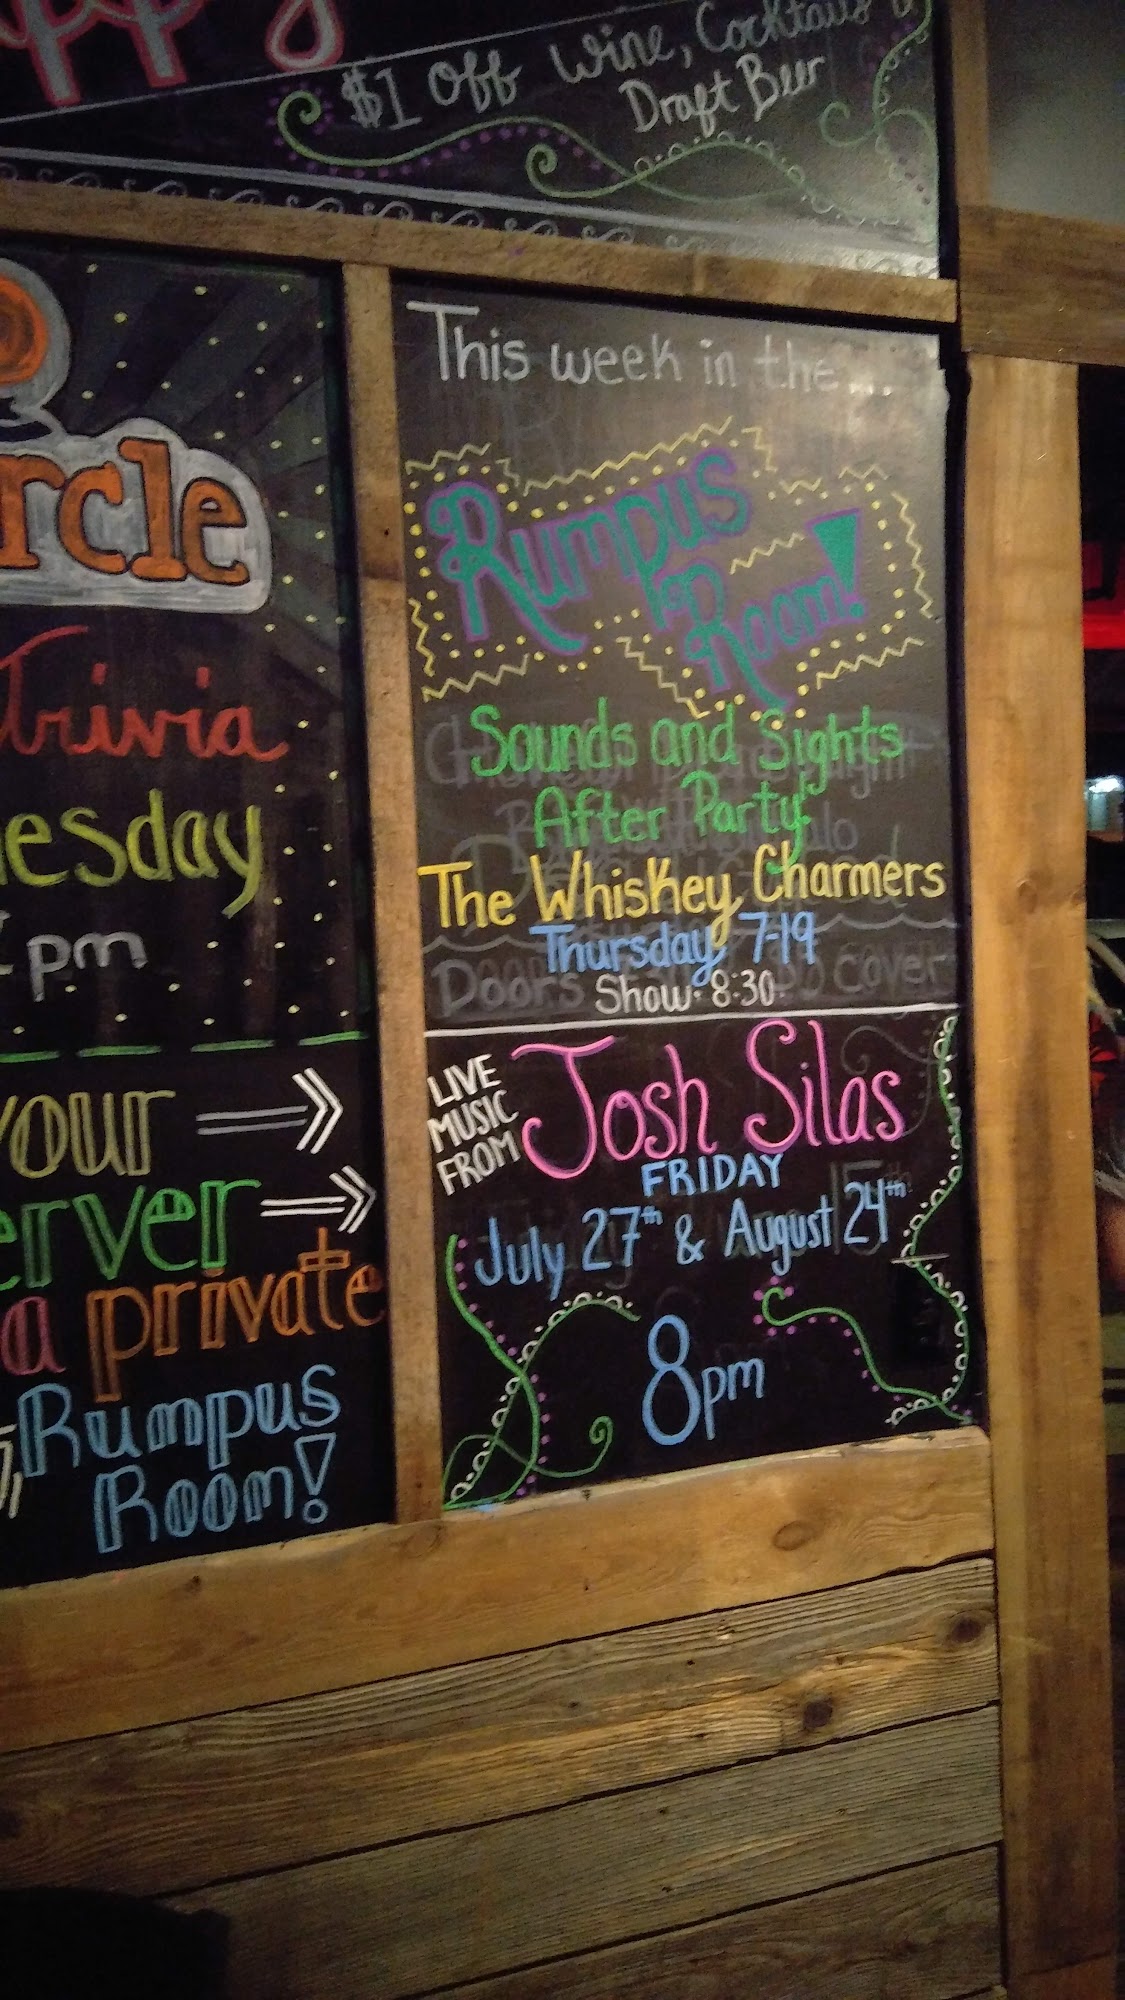 $1 Off Wine, Cocktails
Draft Beer
This week in the...
Rumpus
Room!
Sounds and Sights
After Party!
The Whiskey Charmers
Thursday 7-19
Doors Show: 8:30 cover
LIVE
MUSIC
FROM
Josh Silas
FRIDAY
July 27th & August 24th
8pm
rcle
Trivia
esday
pm
your
erver
a private
Rumpus
Room!